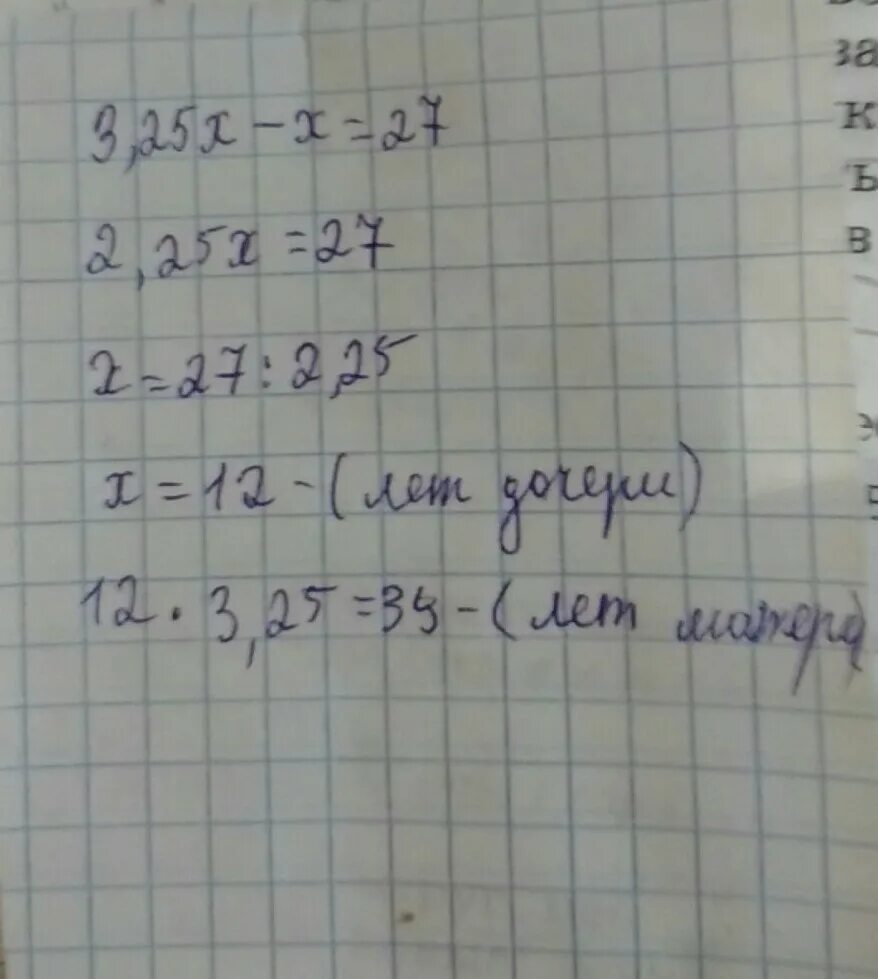 3,25х - х = 27
2,25х = 27
х = 27 : 2,25
х = 12 - (лет дочери)
12 · 3,25 = 39 - (лет матери)
за
к
ъ
в